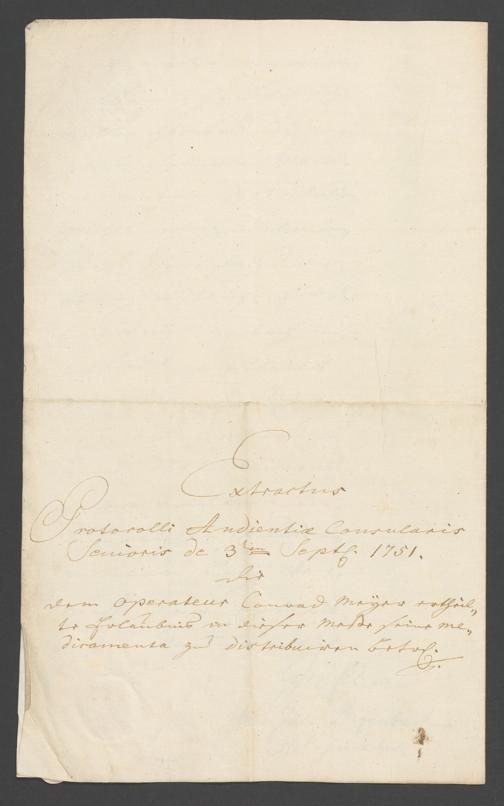 Extractus
Protocolli Audientiæ Consularis
Senioris de 3ten Septb. 1751.
die
dem operateur Conrad Meÿer ertheil„
te Erlaubnis in dieser Meße seine me„
dicamenta zu distribuiren betr.